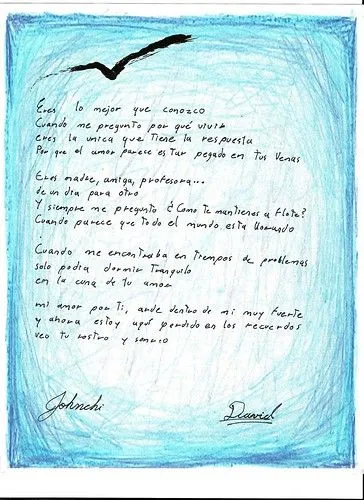 Eres lo mejor que conozco
Cuando me pregunto por qué vivir
eres la unica que tiene la respuesta
Por que el amor parece estar pegado en tus venas
Eres madre, amiga, profesora...
de un dia para otro
Y siempre me pregunto ¿Como te mantienes a flote?
Cuando parece que todo el mundo esta llorando
Cuando me encontraba en tiempos de problemas
solo podia dormir tranquilo
en la cuna de tu amor
mi amor por ti, arde dentro de mi muy fuerte
y ahora estoy aquí perdido en los recuerdos
veo tu rostro y sonrio
Johnchi
David